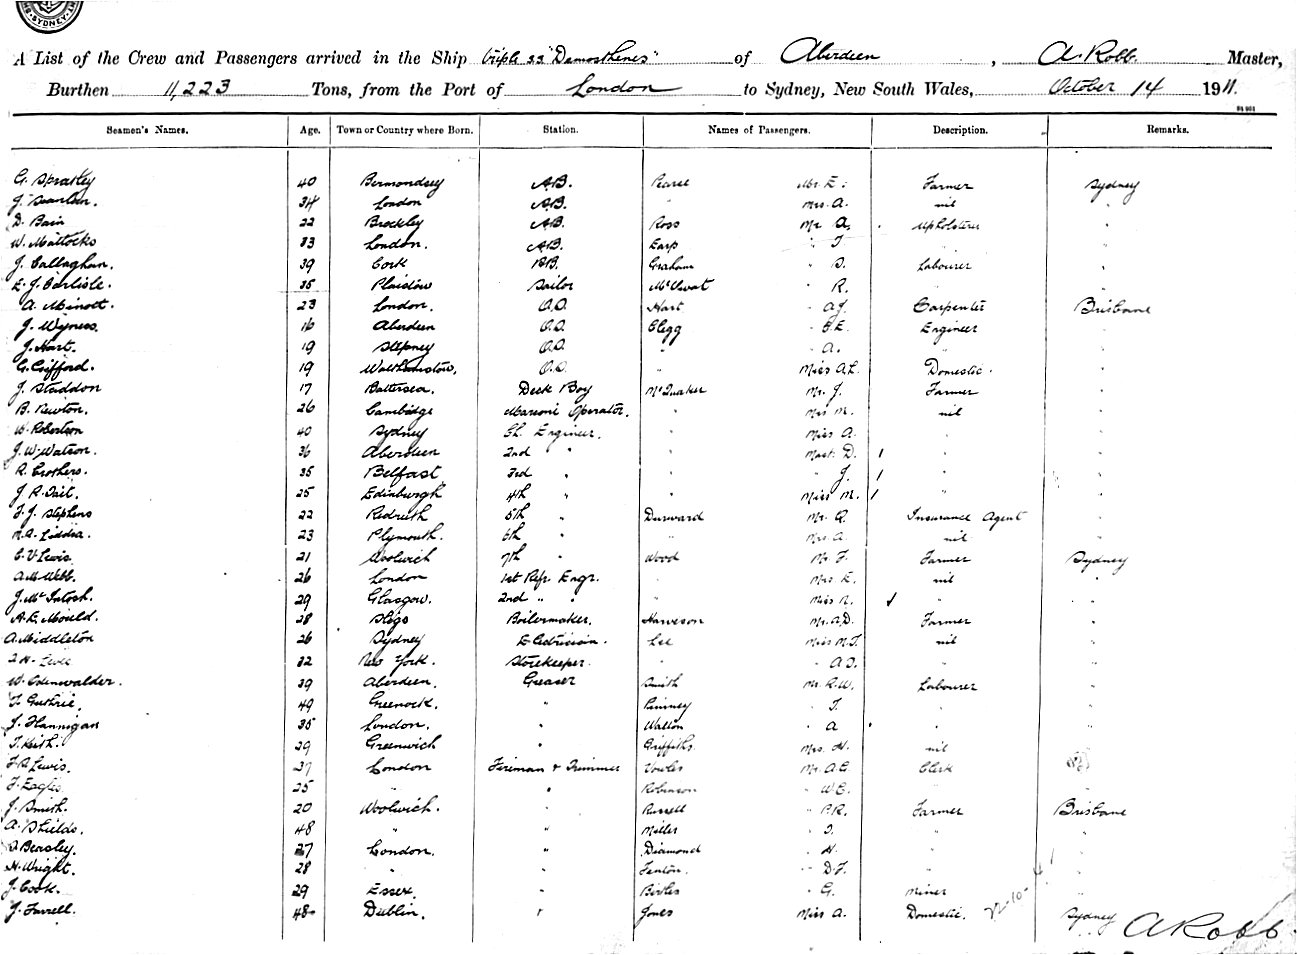 SYDNEY
A List of the Crew and Passengers arrived in the Ship triple ss "Demosthenes" of Aberdeen, A. Robb Master,
Burthen 11,223 Tons, from the Port of London to Sydney, New South Wales, October 14 1911.
Seamen's Names. Age. Town or Country where Born. Station. Names of Passengers. Description. Remarks.
G. Spratley 40 Bermondsey A.B. Pearce Mr. E. Farmer Sydney
J. 34 London A.B. " Mrs. A. nil "
D. Bain 22 Brockley A.B. Ross Mr. A. Upholsterer "
W. Mattocks 33 London. A.B. Earp " J "
J. Callaghan. 39 Cork A.B. Graham " D. Labourer "
E. J. Carlisle. 35 Plaistow Sailor " R. "
A. Minott. 23 London. O.S. Hart " A.J. Carpenter Brisbane
J. Wyness. 16 Aberdeen O.S. Clegg " C.E. Engineer "
J. Hart. 19 Stepney O.S. " " A. " "
G. Gifford. 19 Walthamstow. O.S. " Miss A.L. Domestic. "
J. Staddon 17 Battersea. Deck Boy McQuaker Mr. J. Farmer "
B. Newton. 26 Cambridge Marconi Operator. " Mrs M. nil "
W. Robertson 40 Sydney Ch. Engineer. " Miss A. " "
J. W. Watson. 36 Aberdeen 2nd " " Mast. D. " "
R. Crothers. 35 Belfast 3rd " " " J. " "
J. R. Tait. 25 Edinburgh 4th " " Miss M. " "
F. J. Stephens 22 Redruth 5th " Durward Mr. R. Insurance Agent "
23 Plymouth. 6th " " Mrs A. nil "
C. V. Lewis 21 Woolwich 7th " Wood Mr. F. Farmer Sydney
A. W. Webb. 26 London 1st Refr. Engr. " Mrs. E. nil "
J. McIntosh. 29 Glasgow. 2nd " " " Miss N. " "
A. E. Mould. 28 Sligo Boilermaker. Harveson Mr. A.D. Farmer "
A. Middleton 26 Sydney Electrician. Lee Miss M.F. nil "
32 New York. Storekeeper. " " A.J. " "
W. Odenwalder. 39 Aberdeen. Greaser Smith Mr. R.W. Labourer "
J. Guthrie. 49 Greenock. " " J. " "
J. Flannigan 35 London. " Walton " A " "
J. Keith. 29 Greenwich " Griffiths. Mrs. H. nil "
F. R. Lewis. 27 London Fireman & Trimmer Vowles Mr. A.C. Clerk
F. Eagles 25 " " Robinson " W.C. " "
J. Smith. 20 Woolwich. " Russell " P.R. Farmer Brisbane
A. Shields. 48 " " Miller " J. " "
Beasley. 27 London. " Diamond " H. " "
H. Wright. 28 " " Fenton. " D.F. " "
J. Cook. 29 Essex. " " G. Miner "
J. Farrell. 48 Dublin. " Jones Miss A. Domestic. Sydney
A Robb.